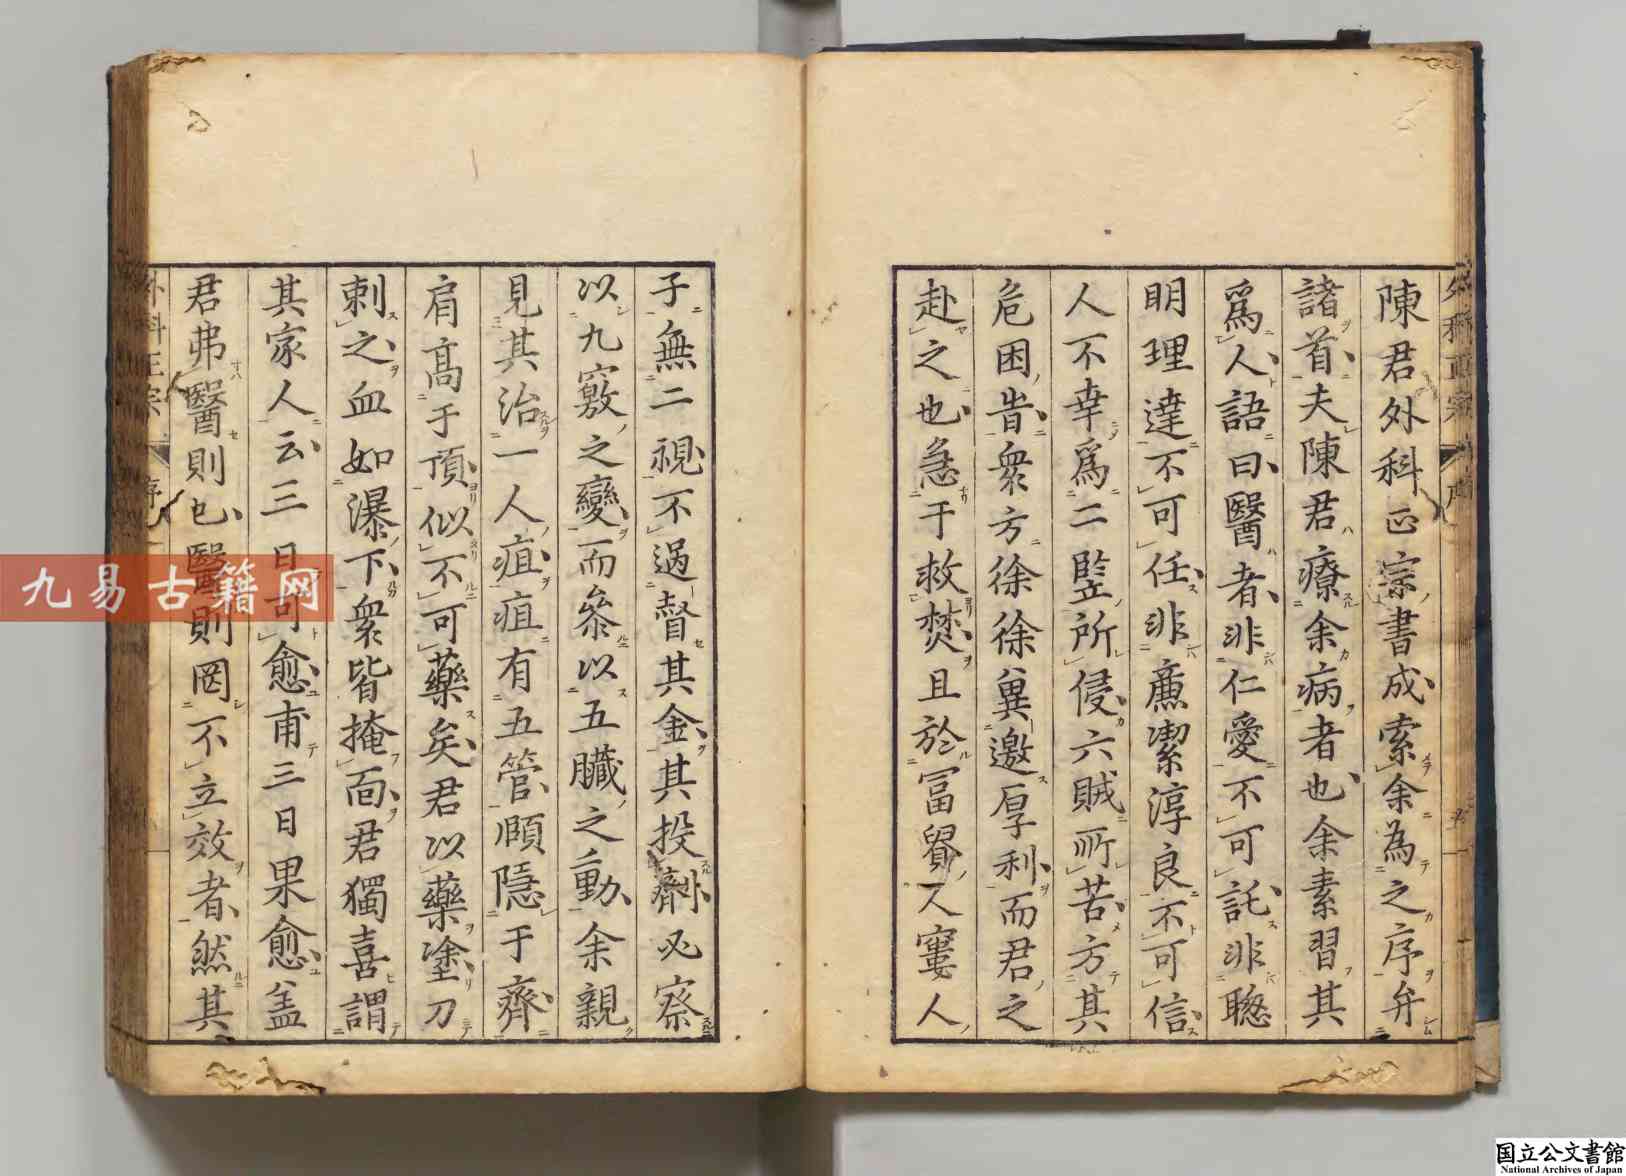 陳君外科正宗書成索余為之序弁
諸首夫陳君療余病者也余素習其
爲人語曰醫者非仁愛不可託非聰
明理達不可任非廉潔淳良不可信
人不幸爲二豎所侵六賊所苦方其
危困告衆方徐徐冀邀厚利而君之
赴之也急于救焚且於冨貴人窶人
子無二視不過督其金其投劑必察
以九竅之變而叅以五臟之動余親
見其治一人疽疽有五管頤隱于齊
肩高于頂似不可藥矣君以藥塗刀
刺之血如瀑下衆皆掩面君獨喜謂
其家人云三日可愈甫三日果愈盖
君弗醫則已醫則罔不立效者然其
外科正宗 序
九易古籍网
国立公文書館
National Archives of Japan